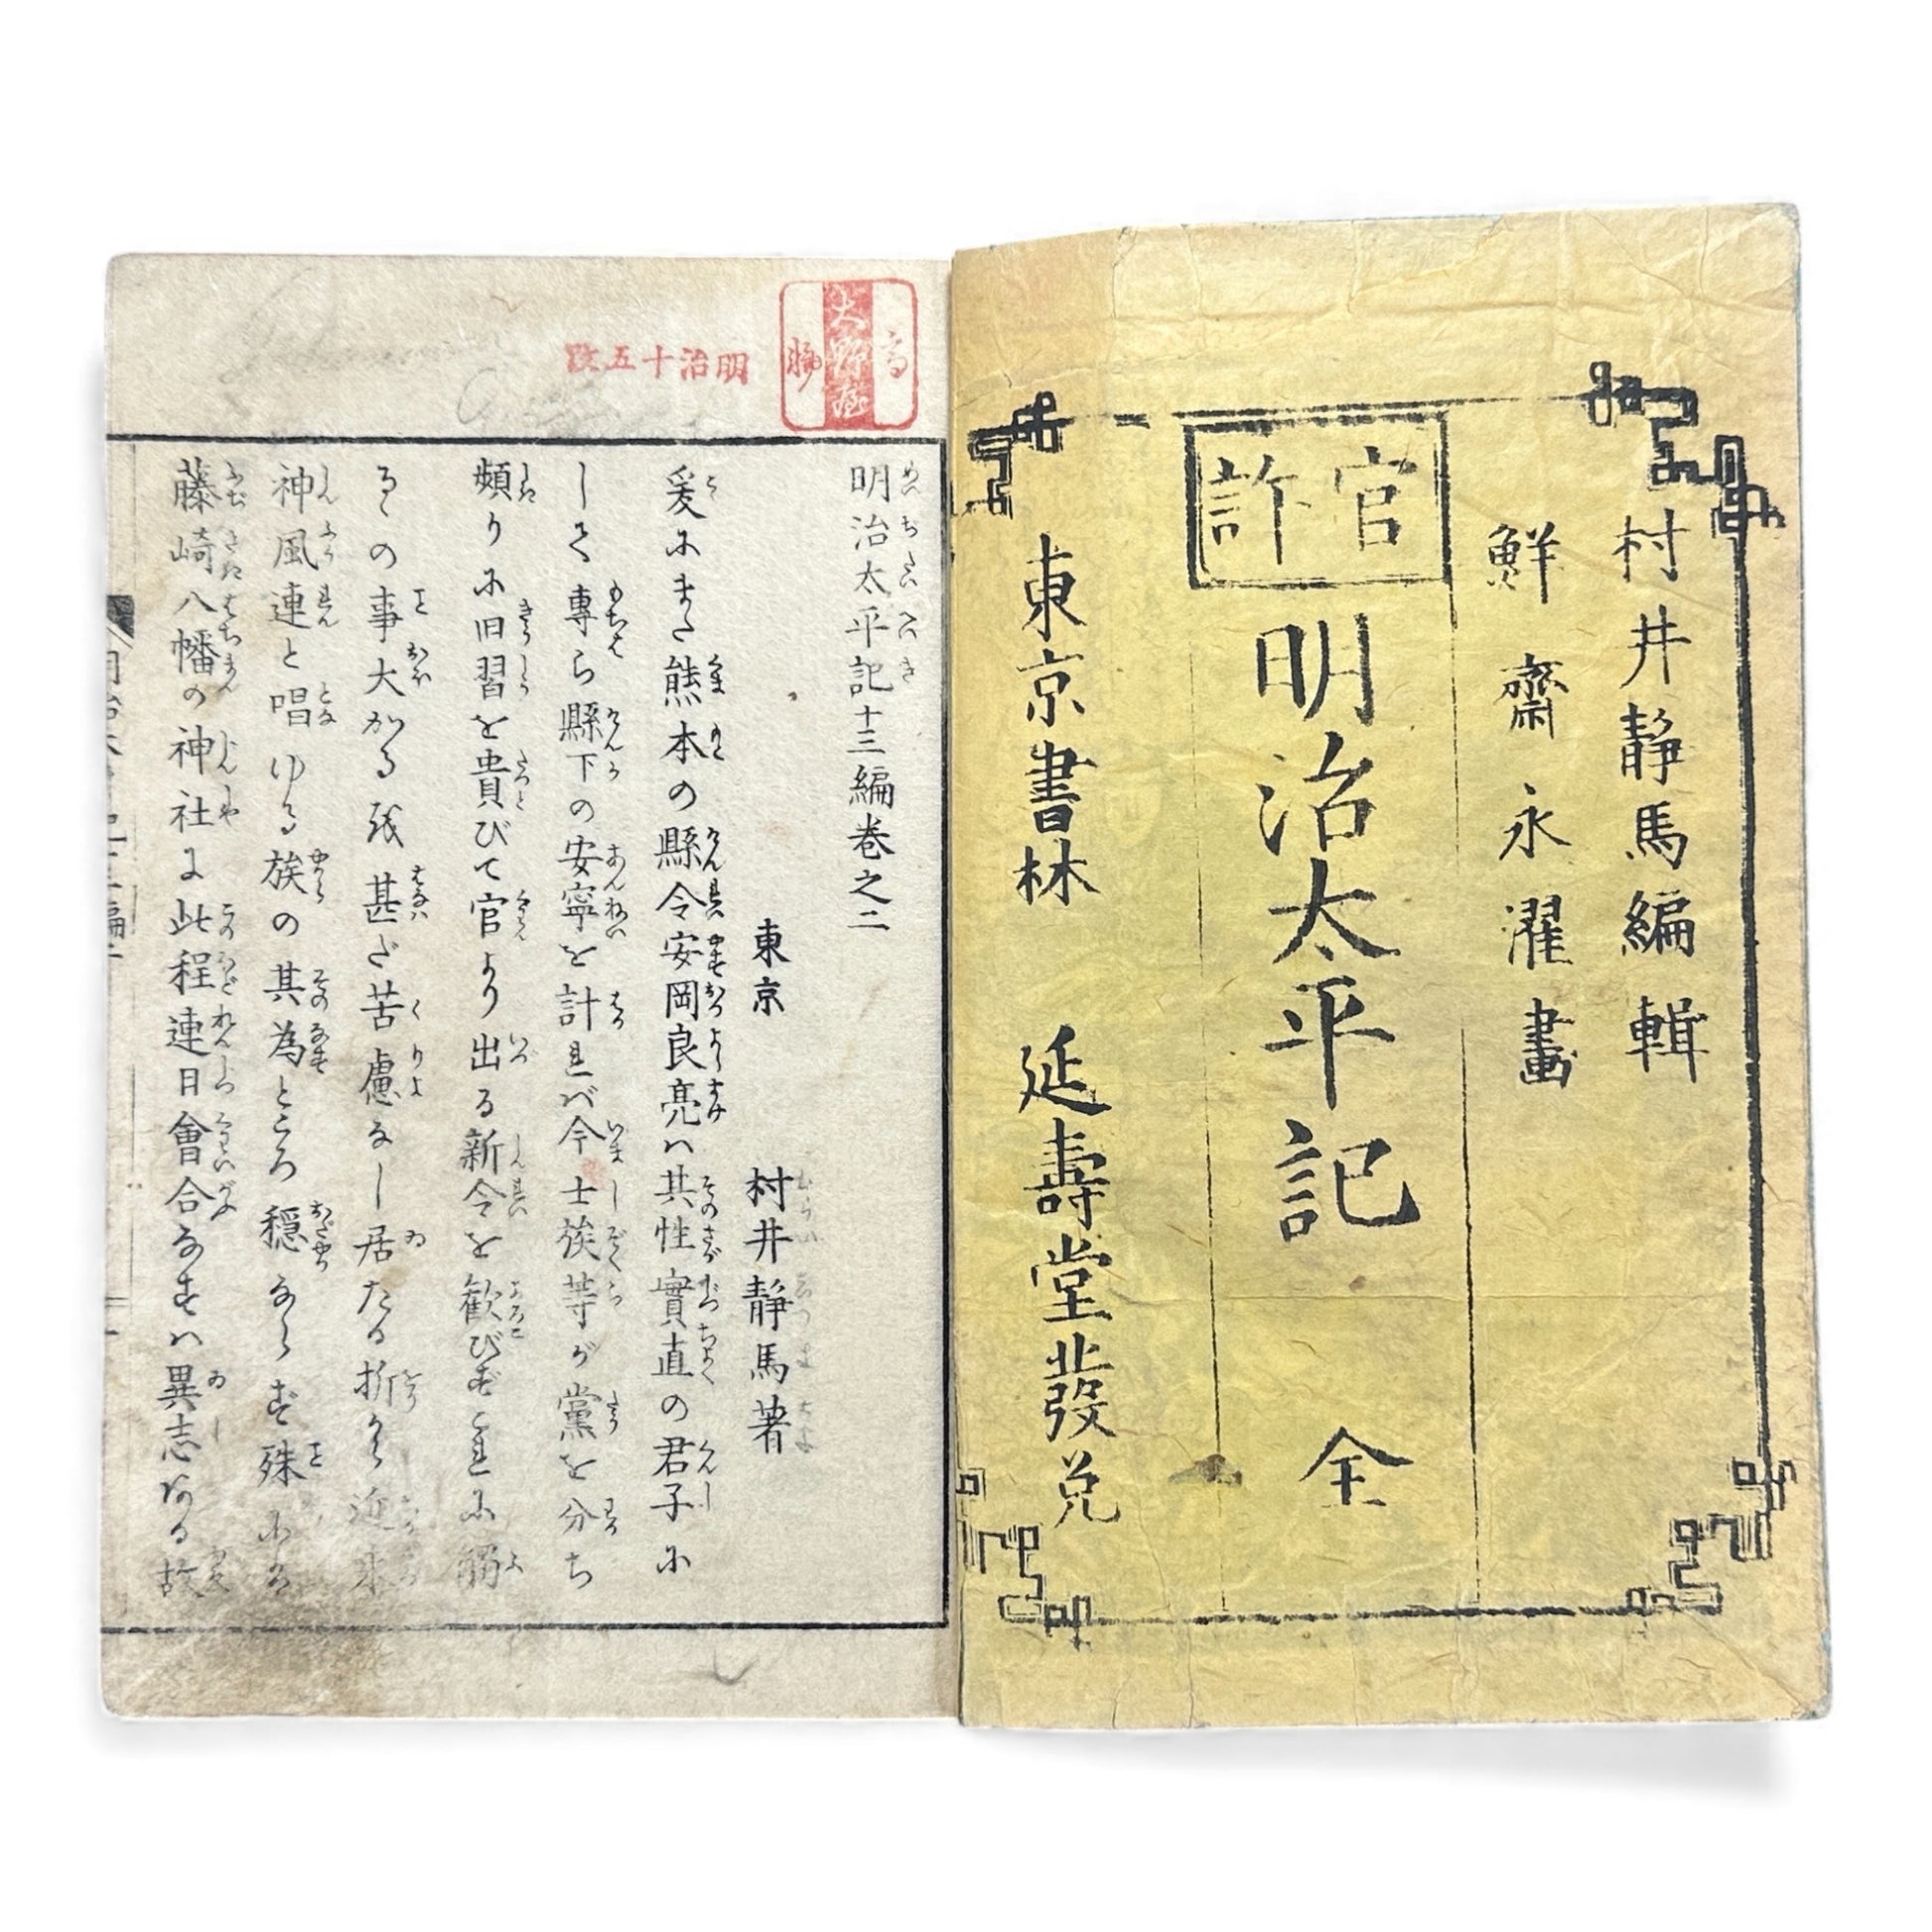 村井靜馬編輯
鮮齋永濯畫
官許
明治太平記 全
東京書林 延壽堂發兌
大野屋
明治十五改
明治太平記十三編巻之二
東京 村井靜馬著
爰にまた熊本の縣令安岡良亮ハ其性實直の君子に
して専ら縣下の安寧を計れバ今士族等が黨を分ち
頻りに旧習を貴びて官より出る新令を歓びずこれに觸
るゝの事大かるを甚だ苦慮なし居たる折から近来
神風連と唱ゆる族の其為ところ穏ならず殊にハ
藤崎八幡の神社に此程連日會合なすハ異志ある故